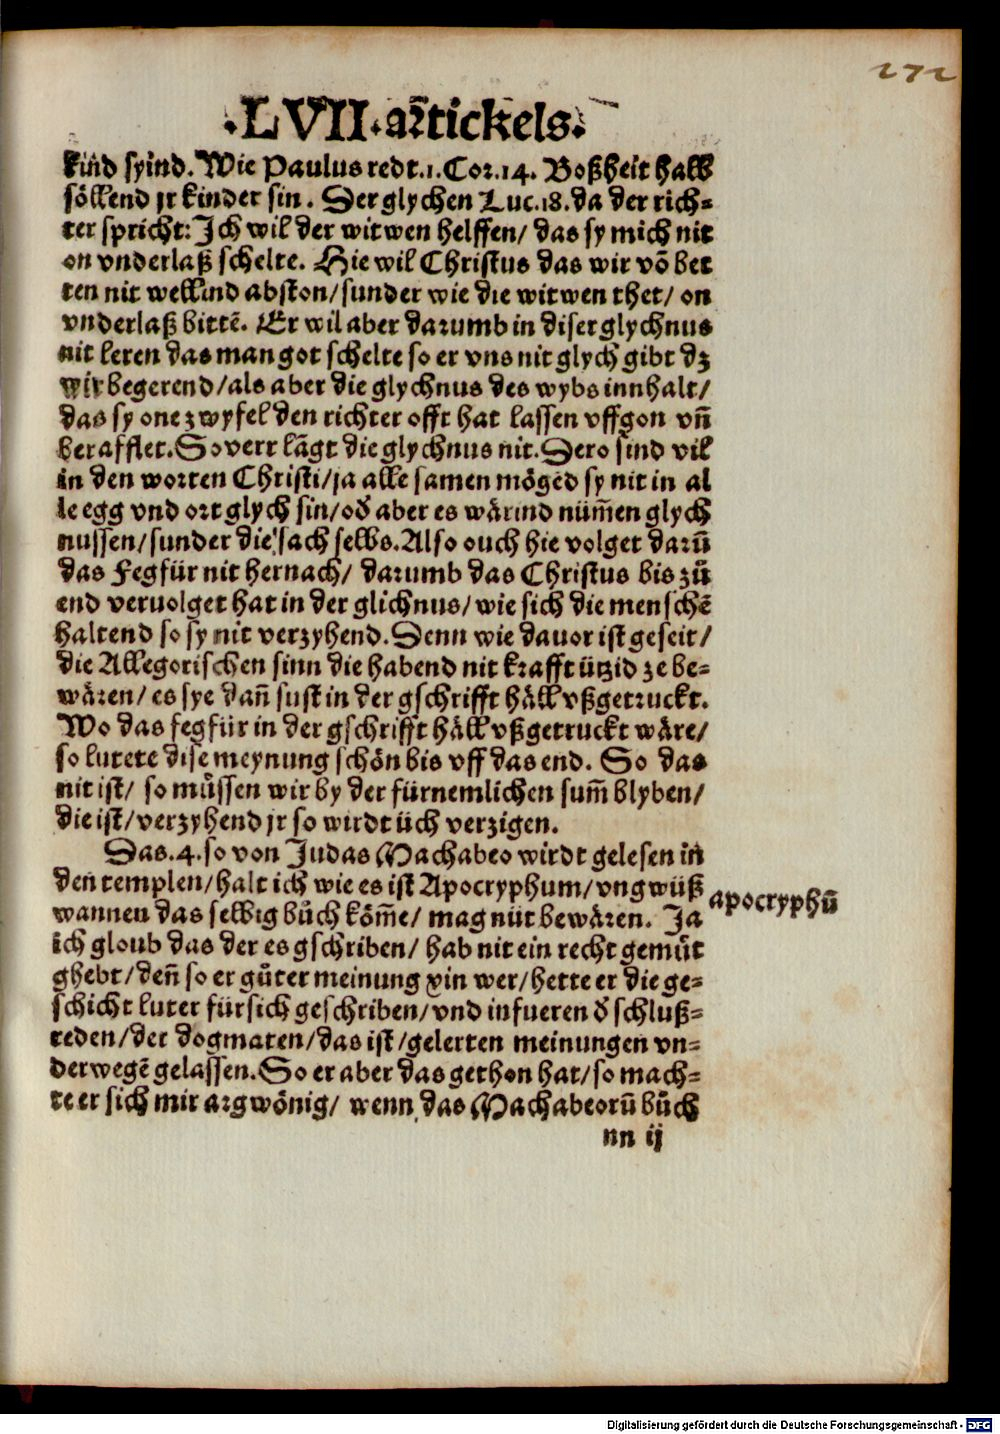 272
.LVII.artickels.
kind syind. Wie Paulus redt.1.Cor.14. Boßheit halb
söllend jr kinder sin. Der glychen Luc.18.da der rich-
ter spricht: Ich wil der witwen helffen/ das sy mich nit
on vnderlaß schelte. Hie wil Christus das wir võ bet
ten nit wellind abston/sunder wie die witwen thet/ on
vnderlaß bittē. Er wil aber darumb in diser glychnus
nit leren das man got schelte so er vns nit glych gibt dz
wir begerend/als aber die glychnus des wybs innhalt/
das sy one zwyfel den richter offt hat lassen vffgon vñ
berafflet. So verr lãgt die glychnus nit. Dero sind vil
in den worten Christi/ja alle samen mögēd sy nit in al
le egg vnd ort glych sin/oď aber es wärind nüm̄en glych
nussen/sunder die sach selbs. Also ouch hie volget darũ
das Fegfür nit hernach/ darumb das Christus bis zů
end veruolget hat in der glichnus/wie sich die menschē
haltend so sy nit verzyhend. Denn wie dauor ist geseit/
die Allegorischen sinn die habend nit krafft ützid ze be-
wären/es sye dañ sust in der gschrifft häll vßgetruckt.
Wo das fegfür in der gschrifft häll vßgetruckt wäre/
so lutete dise meynung schön bis vff das end. So das
nit ist/ so müssen wir by der fürnemlichen sum̄ blyben/
die ist/verzyhend jr so wirdt üch verzigen.
Das.4.so von Judas Machabeo wirdt gelesen in
den templen/halt ich wie es ist Apocryphum/vngwüß
wannen das selbig bůch köm̄e/ mag nüt bewären. Ja
ich gloub das der es gschriben/ hab nit ein recht gemüt
ghebt/deñ so er gůter meinung xin wer/hette er die ge-
schicht luter fürsich geschriben/vnd infueren ď schluß-
reden/der dogmaten/das ist/gelerten meinungen vn-
derwegē gelassen. So er aber das gethon hat/so mach-
te er sich mir argwönig/ wenn das Machabeorũ bůch
apocryphũ
nn ij
Digitalisierung gefördert durch die Deutsche Forschungsgemeinschaft - DFG